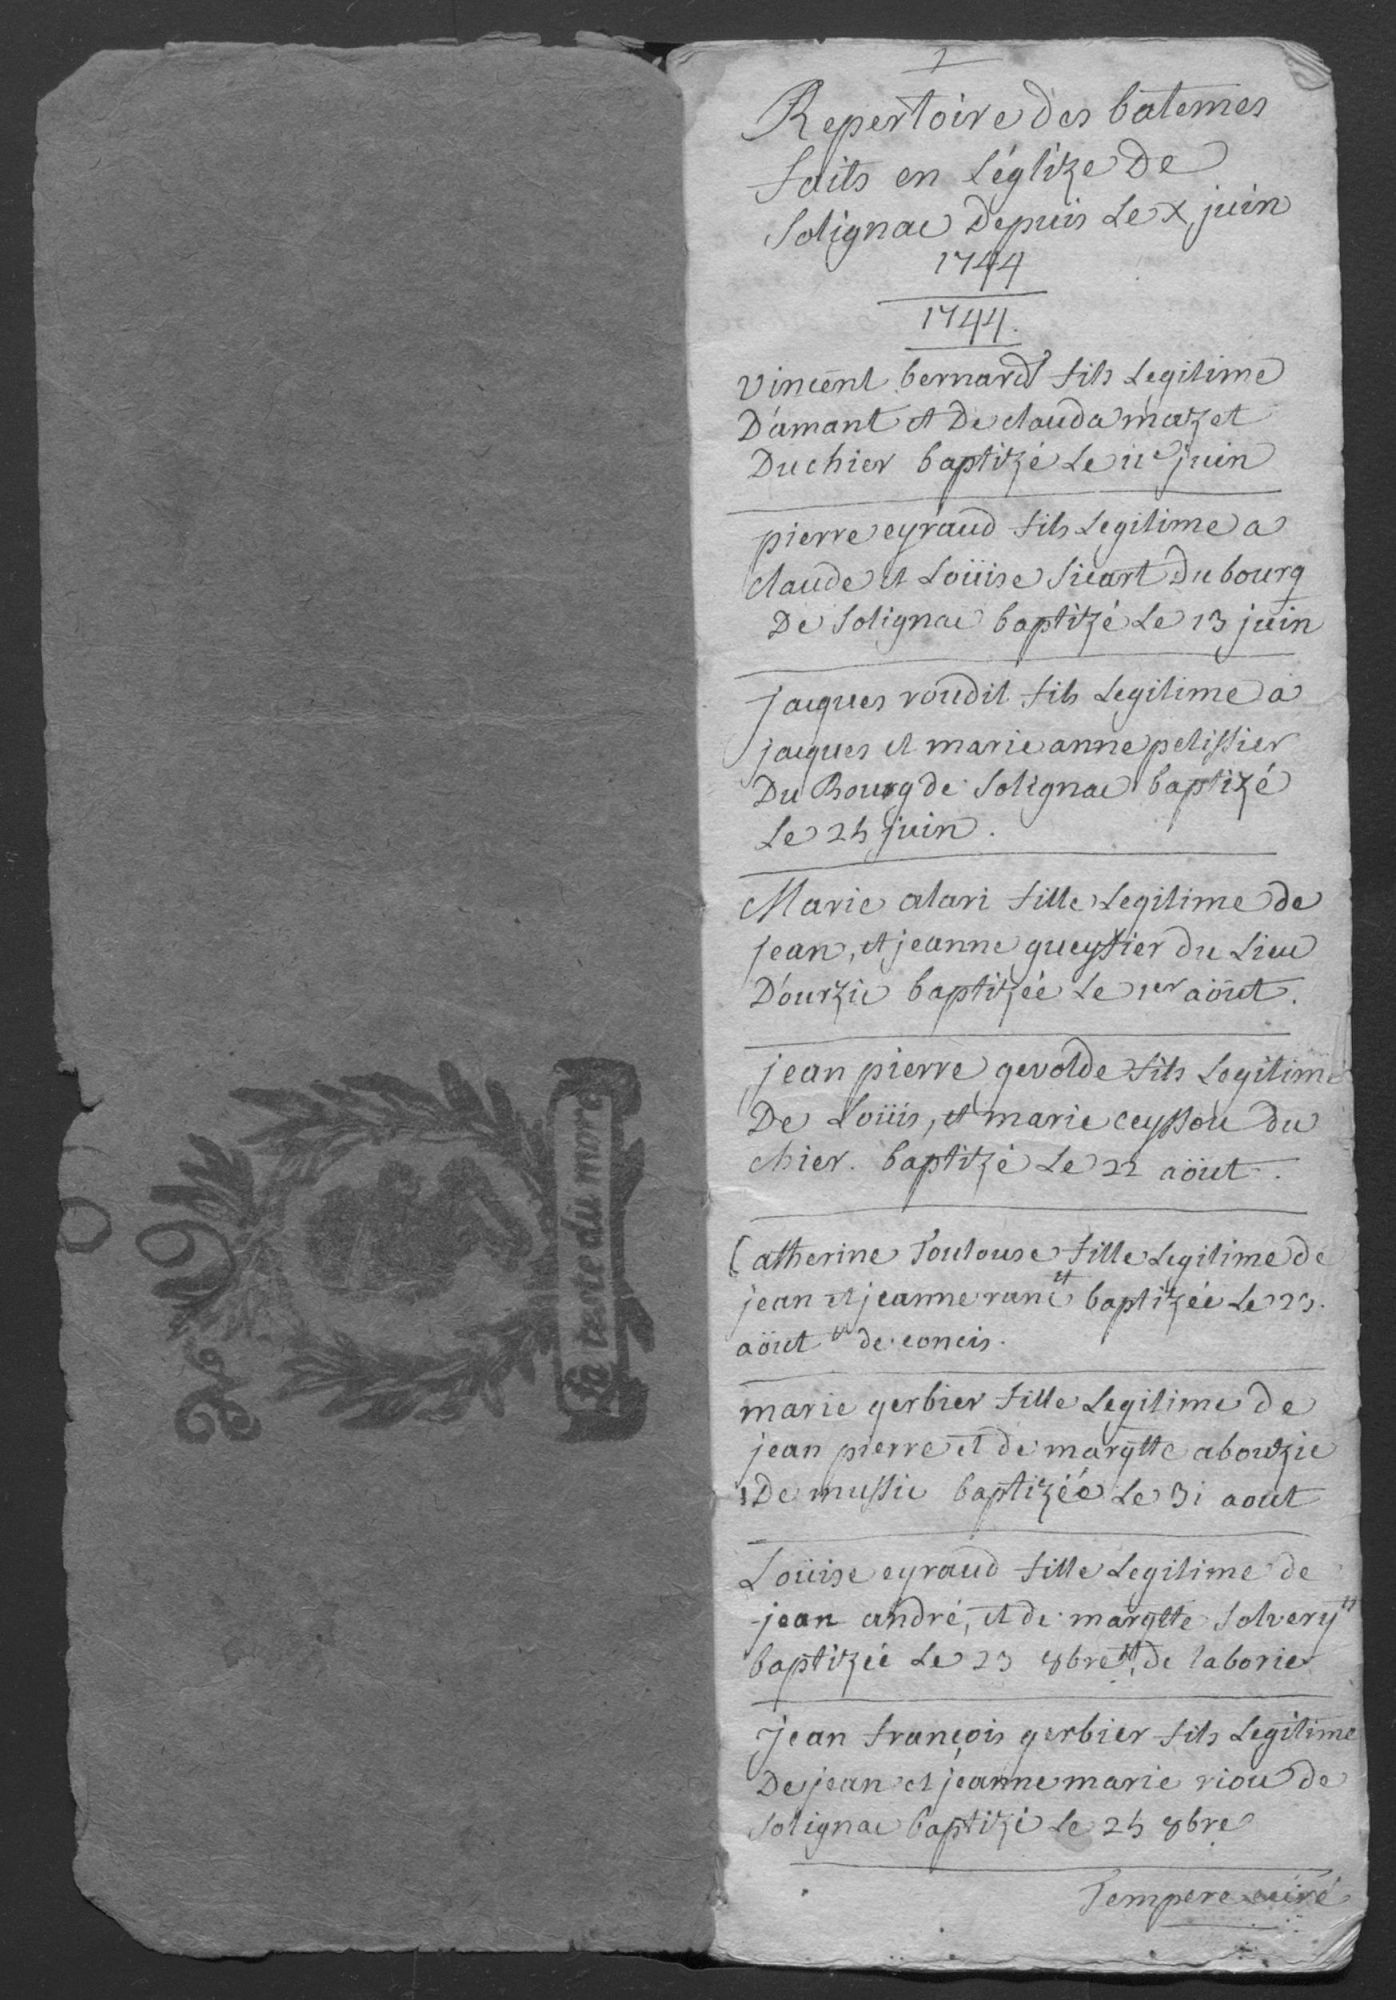 1
Repertoire des batemes
faits en L'églize De
Solignac Depuis Le x juin
1744
1744.
Vincent bernard fils Legitime
D'amant et De clauda mazet
Du chier baptizé Le 11e juin
pierre eyraud fils Legitime a
claude et Loüise Sicart Du bourg
De Solignac baptizé Le 13 juin
jacques roudil fils Legitime a
jacques et marie anne pelissier
Du Bourg de Solignac baptizé
Le 25 juin.
Marie alari fille Legitime de
jean, et jeanne gueyffier du Lieu
D'ourzie baptizée Le 1er aöut.
jean pierre gevolde fils Legitime
De Loüis, et marie ceyssou du
chier. baptizé Le 22 aöut.
Catherine Toulouse fille Legitime de
jean et jeanne ranc baptizée Le 23.
aöut de concis.
marie gerbier fille Legitime de
jean pierre et de margtte abouzie
De mussic baptizée Le 31 aout
Loüise eyraud fille Legitime de
jean andré, et de margtte Solvery
baptizée Le 23 8bre, de laborie
jean françois gerbier fils Legitime
De jean et jeanne marie riou de
Solignac baptizé Le 25 8bre
Tempere curé
la teste du more